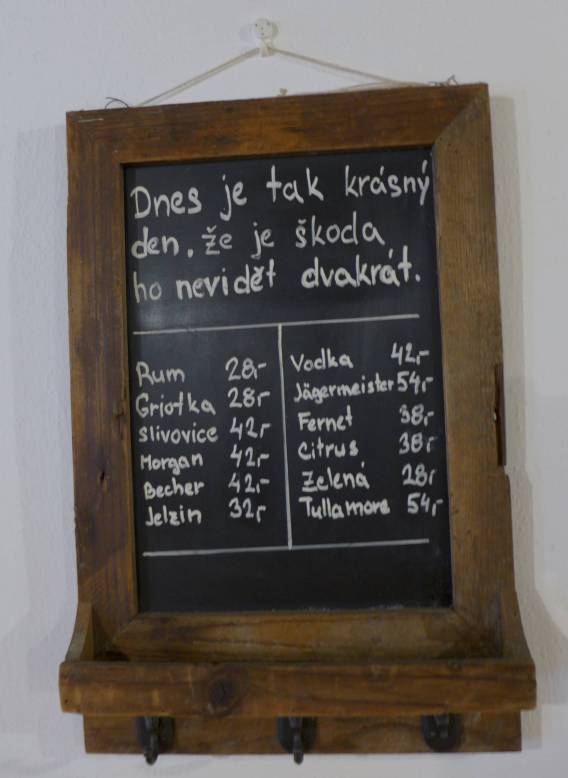 Dnes je tak krásný
den, že je škoda
ho nevidět dvakrát.
Rum 28,-
Griotka 28,-
Slivovice 42,-
Morgan 42,-
Becher 42,-
Jelzin 32,-
Vodka 42,-
Jägermeister 54,-
Fernet 38,-
Citrus 38,-
Zelená 28,-
Tullamore 54,-